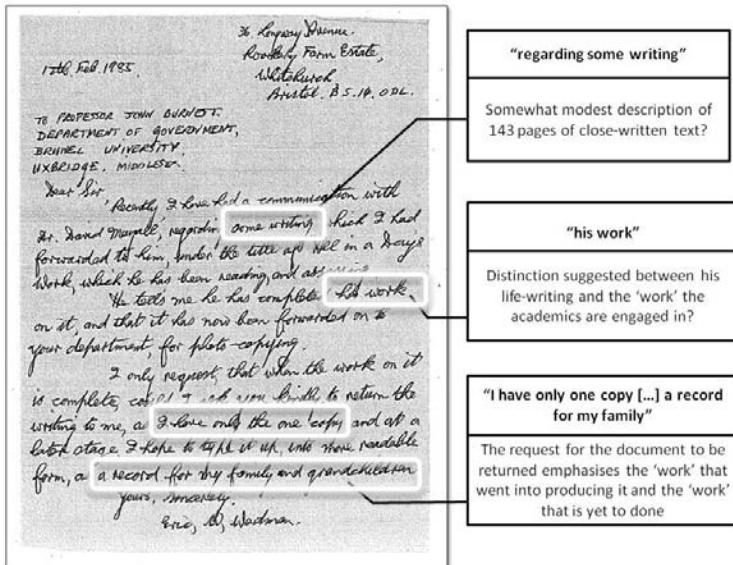 36. Longway Avenue.
Rookery Farm Estate,
Whitchurch
Bristol. B.S.14. ODL.
12th. Feb. 1985.
TO PROFESSOR JOHN BURNETT.
DEPARTMENT OF GOVERNMENT,
BRUNEL UNIVERSITY.
UXBRIDGE. MIDDLESEX.
Dear Sir
Recently I have had a communication with
Dr. David regarding some writing which I had
forwarded to him, under the title of All in a Days
Work, which he has been reading, and
He tells me he has complete his work,
on it, and that it has now been forwarded on to
your department, for photo-copying.
I only request, that when the work on it
is complete, could I ask you kindly to return the
writing to me, as I have only the one copy and at a
later stage I hope to type it up, into more readable
form, as a record for my family and grandchildren
Yours, sincerely.
Eric, W, Wadman.
"regarding some writing"
Somewhat modest description of
143 pages of close-written text?
"his work"
Distinction suggested between his
life-writing and the 'work' the
academics are engaged in?
"I have only one copy [...] a record
for my family"
The request for the document to be
returned emphasises the 'work' that
went into producing it and the 'work'
that is yet to done